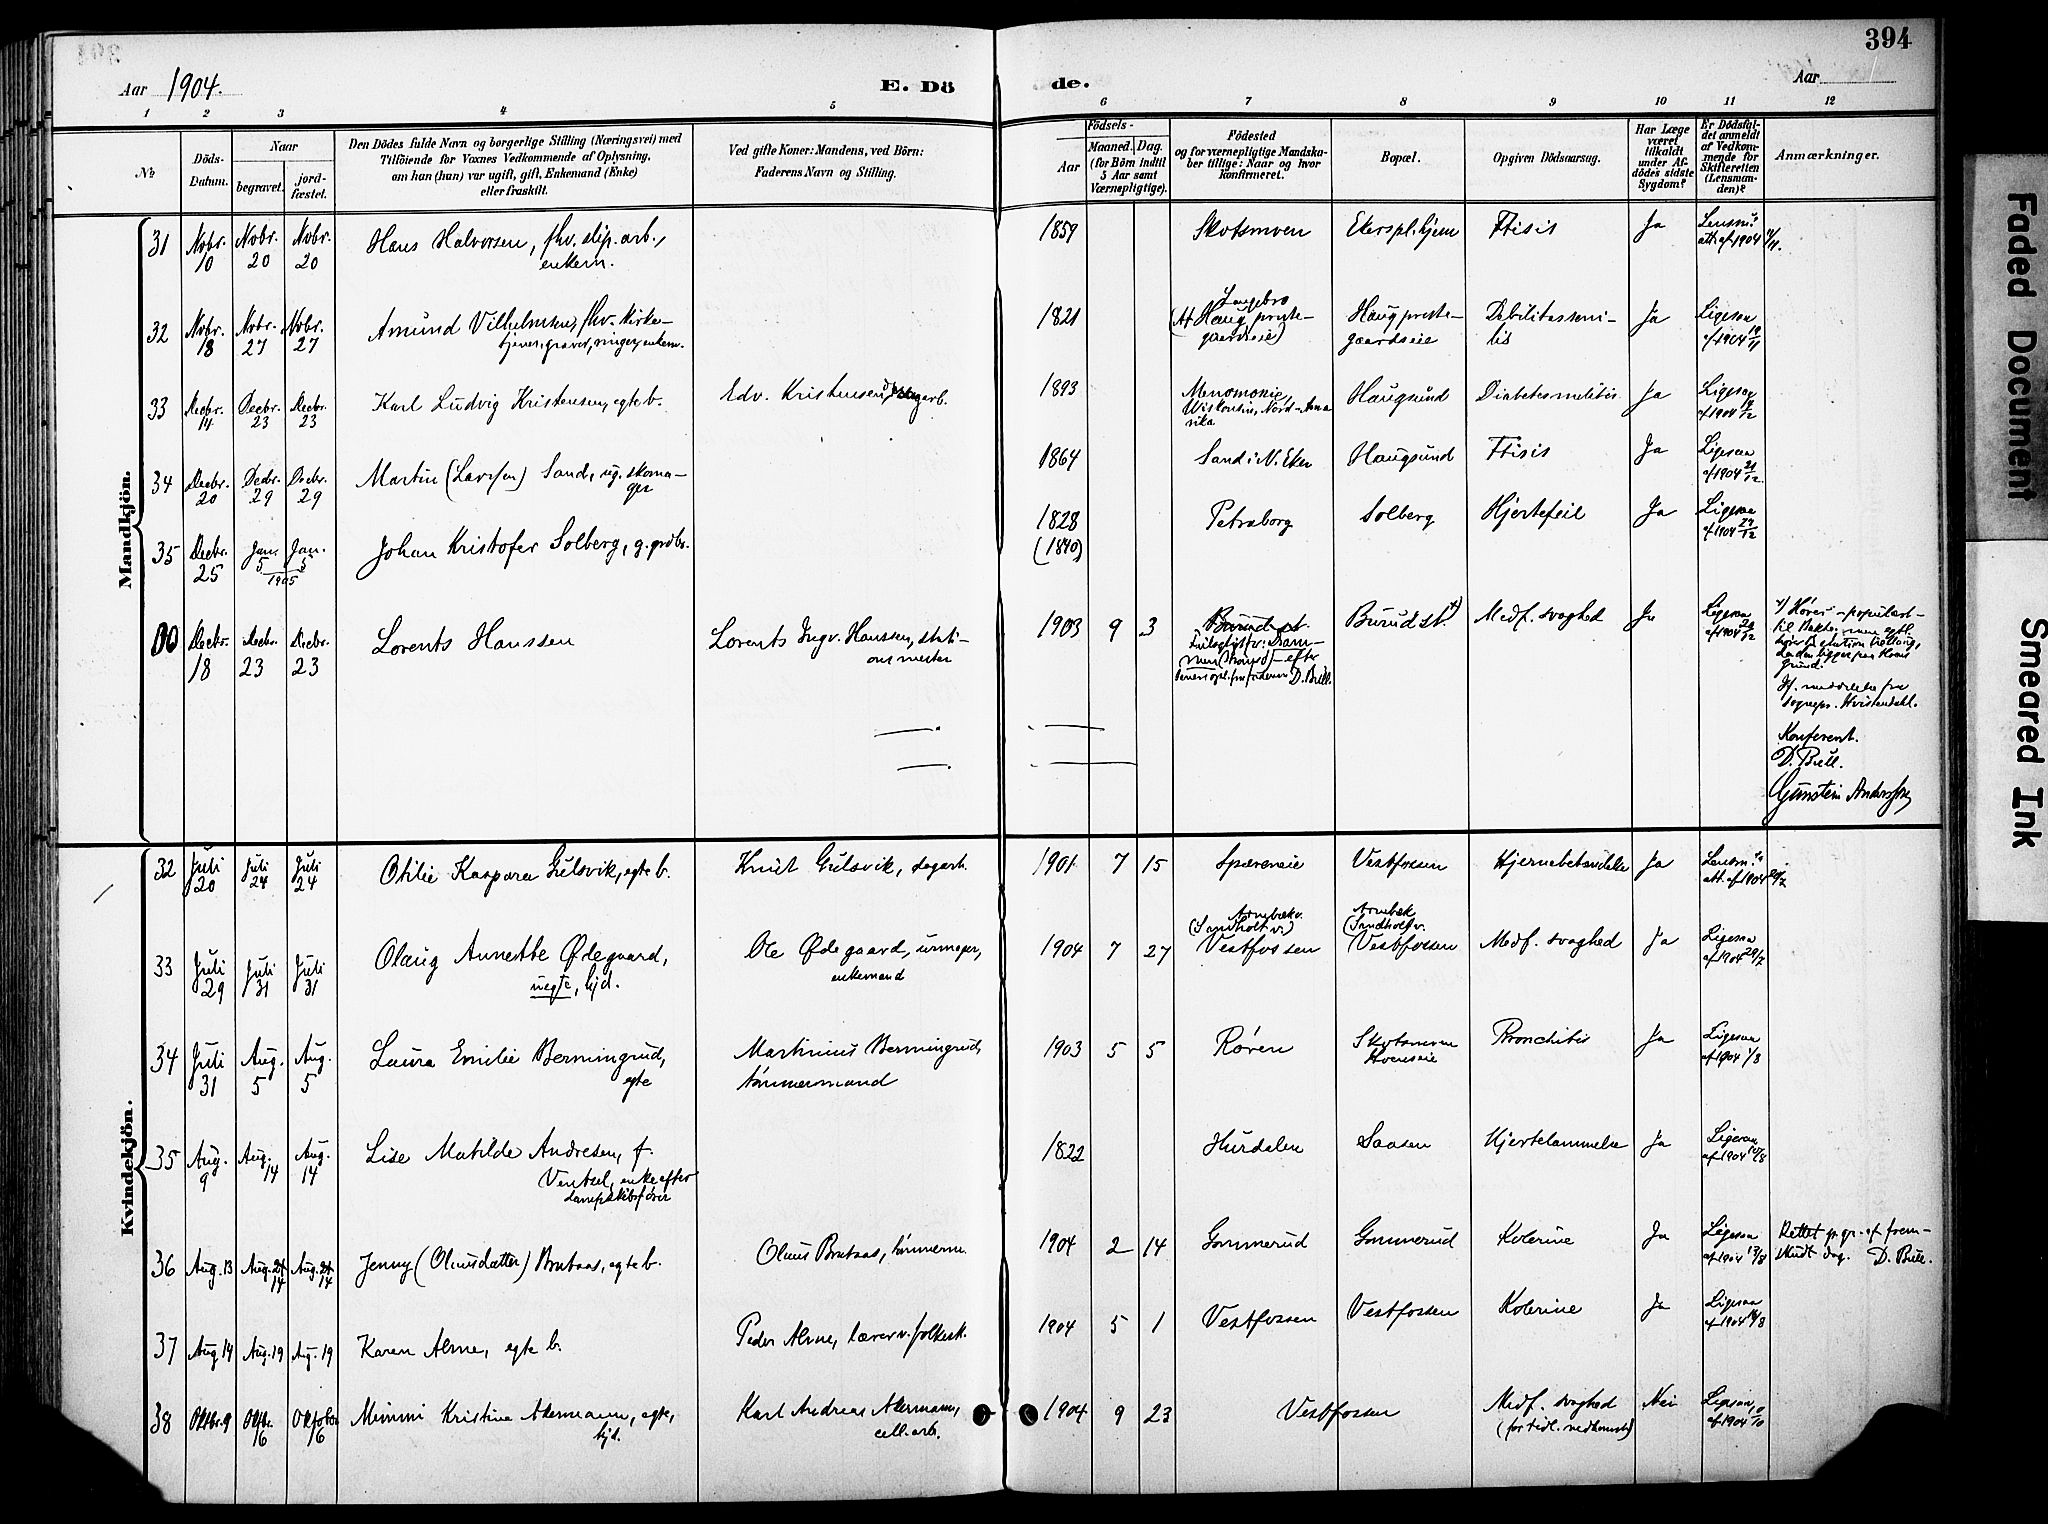 394
Aar 1904.
E. Dö
de.
Aar
1 2 3 4 5 6 7 8 9 10 11 12
No
Döds-Datum.
Naar
begravet.
jord-fæstet.
Den Dödes fulde Navn og borgerlige Stilling (Næringsvei) med
Tilföiende for Voxnes Vedkommende af Oplysning,
om han (hun) var ugift, gift, Enkemand (Enke)
eller fraskilt.
Ved gifte Koner: Mandens, ved Börn:
Faderens Navn og Stilling.
Födsels-
Aar
Maaned. Dag.
(for Börn indtil
5 Aar samt
Værnepligtige).
Födested
og for værnepligtige Mandska-
ber tillige: Naar og hvor
Konfirmeret.
Bopæl.
Opgiven Dödsaarsag.
Har Læge
været
tilkaldt
under Af-
dödes sidste
Sygdom?
Er Dödsfal-
det anmeldt
af Vedkom-
mende for
Skifteretten
(Lensman-
den)?
Anmærkninger.
Mandkjön.
31 Novbr. 10 Novbr. 20 Novbr. 20 Hans Halvorsen, fhv. slip. arb., enkem. 1859 Skotsmoen Ekers pl. hjem Ftisis Ja Lensm.s att. af 1904
32 Novbr. 18 Novbr. 27 Novbr. 27 Amund Vilhelmsen, fhv. kirke-
tjener, graver, ringer, enkem. 1821 Haug preste-
gaardseie) Haug preste-
gaardseie Debilitas seni-
lis Ja Ligesaa af 1904 19/11
33 Decbr. 14 Decbr. 23 Decbr. 23 Karl Ludvig Kristensen, egte b. Edv. Kristensen, 1893 Menomonie,
Wiskonsin, Nord-Ame
rika Haugsund Diabetes melitis Ja Ligesaa af 1904
34 Decbr. 20 Decbr. 29 Decbr. 29 Martin (Larssen) Sand, ug. skoma-
ger 1864 Sand i N. Eker Haugsund Ftisis Ja Ligesaa af 1904 21/12
35 Decbr. 25 Jan. 5 Jan. 5 1905 Johan Kristofer Solberg, g. grdbr. 1828
(1840) Petraborg Solberg Hjertefeil Ja Ligesaa af 1904 29/12
00 Decbr. 18 Decbr. 23 Decbr. 23 Lorents Hanssen Lorents Ingv. Hanssen, stati-
onsmester 1903 9 3 Burud st. Burud st. Medf. svaghed Ja Ligesaa af 1904
Konferert.
D. Bull.
Gunstein Anderssen
Kvindekjön.
32 Juli 20 Juli 24 Juli 24 Otilie Kaspara Gulsvik, egte b. Knut Gulsvik, sagarb. 1901 7 15 Vestfossen Hjernebetændelse Ja Lensm.s att. af 1904 20/7
33 Juli 29 Juli 31 Juli 31 Olaug Annette Ødegaard,
uegte, hjd. Ole Ødegaard, urmager,
enkemand 1904 7 27 (Sandholt v.)
Vestfossen (Sandholt v.
Vestfossen Medf. svaghed Ja Ligesaa af 1904 29/7
34 Juli 31 Aug. 5 Aug. 5 Laura Emilie Bermingrud,
egte Martinius Bermingrud,
tømmermand 1903 5 5 Røren Skotsmoen
Hoenseie Bronchitis Ja Ligesaa af 1904 1/8
35 Aug. 9 Aug. 14 Aug. 14 Lise Matilde Andresen, f.
Ventzel, enke efter
dampskibsfører 1822 Hurdalen Saasen Hjertelammelse Ja Ligesaa af 1904 10/8
36 Aug. 13 Aug. 14 Aug. 14 Jenny (Olausdatter) Brataas, egte b. Olaus Brataas, tømmerm. 1904 2 14 Gommerud Gommerud Kolerine Ja Ligesaa af 1904 13/8 Rettet p. gr. af frem-
skudt dag. D. Bull.
37 Aug. 14 Aug. 19 Aug. 19 Karen Alme, egte b. Peder Alme, lærer v. folkesk. 1904 5 1 Vestfossen Vestfossen Kolerine Ja Ligesaa af 1904 16/8
38 Oktbr. 9 Oktbr. 16 Oktober 16 Mimmi Kristine Akermann, egte,
hjd. Karl Andreas Akermann,
cell. arb. 1904 9 23 Vestfossen Medf. svaghed
(for tidl. nedkomst) Nei Ligesaa af 1904
Faded Document
Smeared Ink